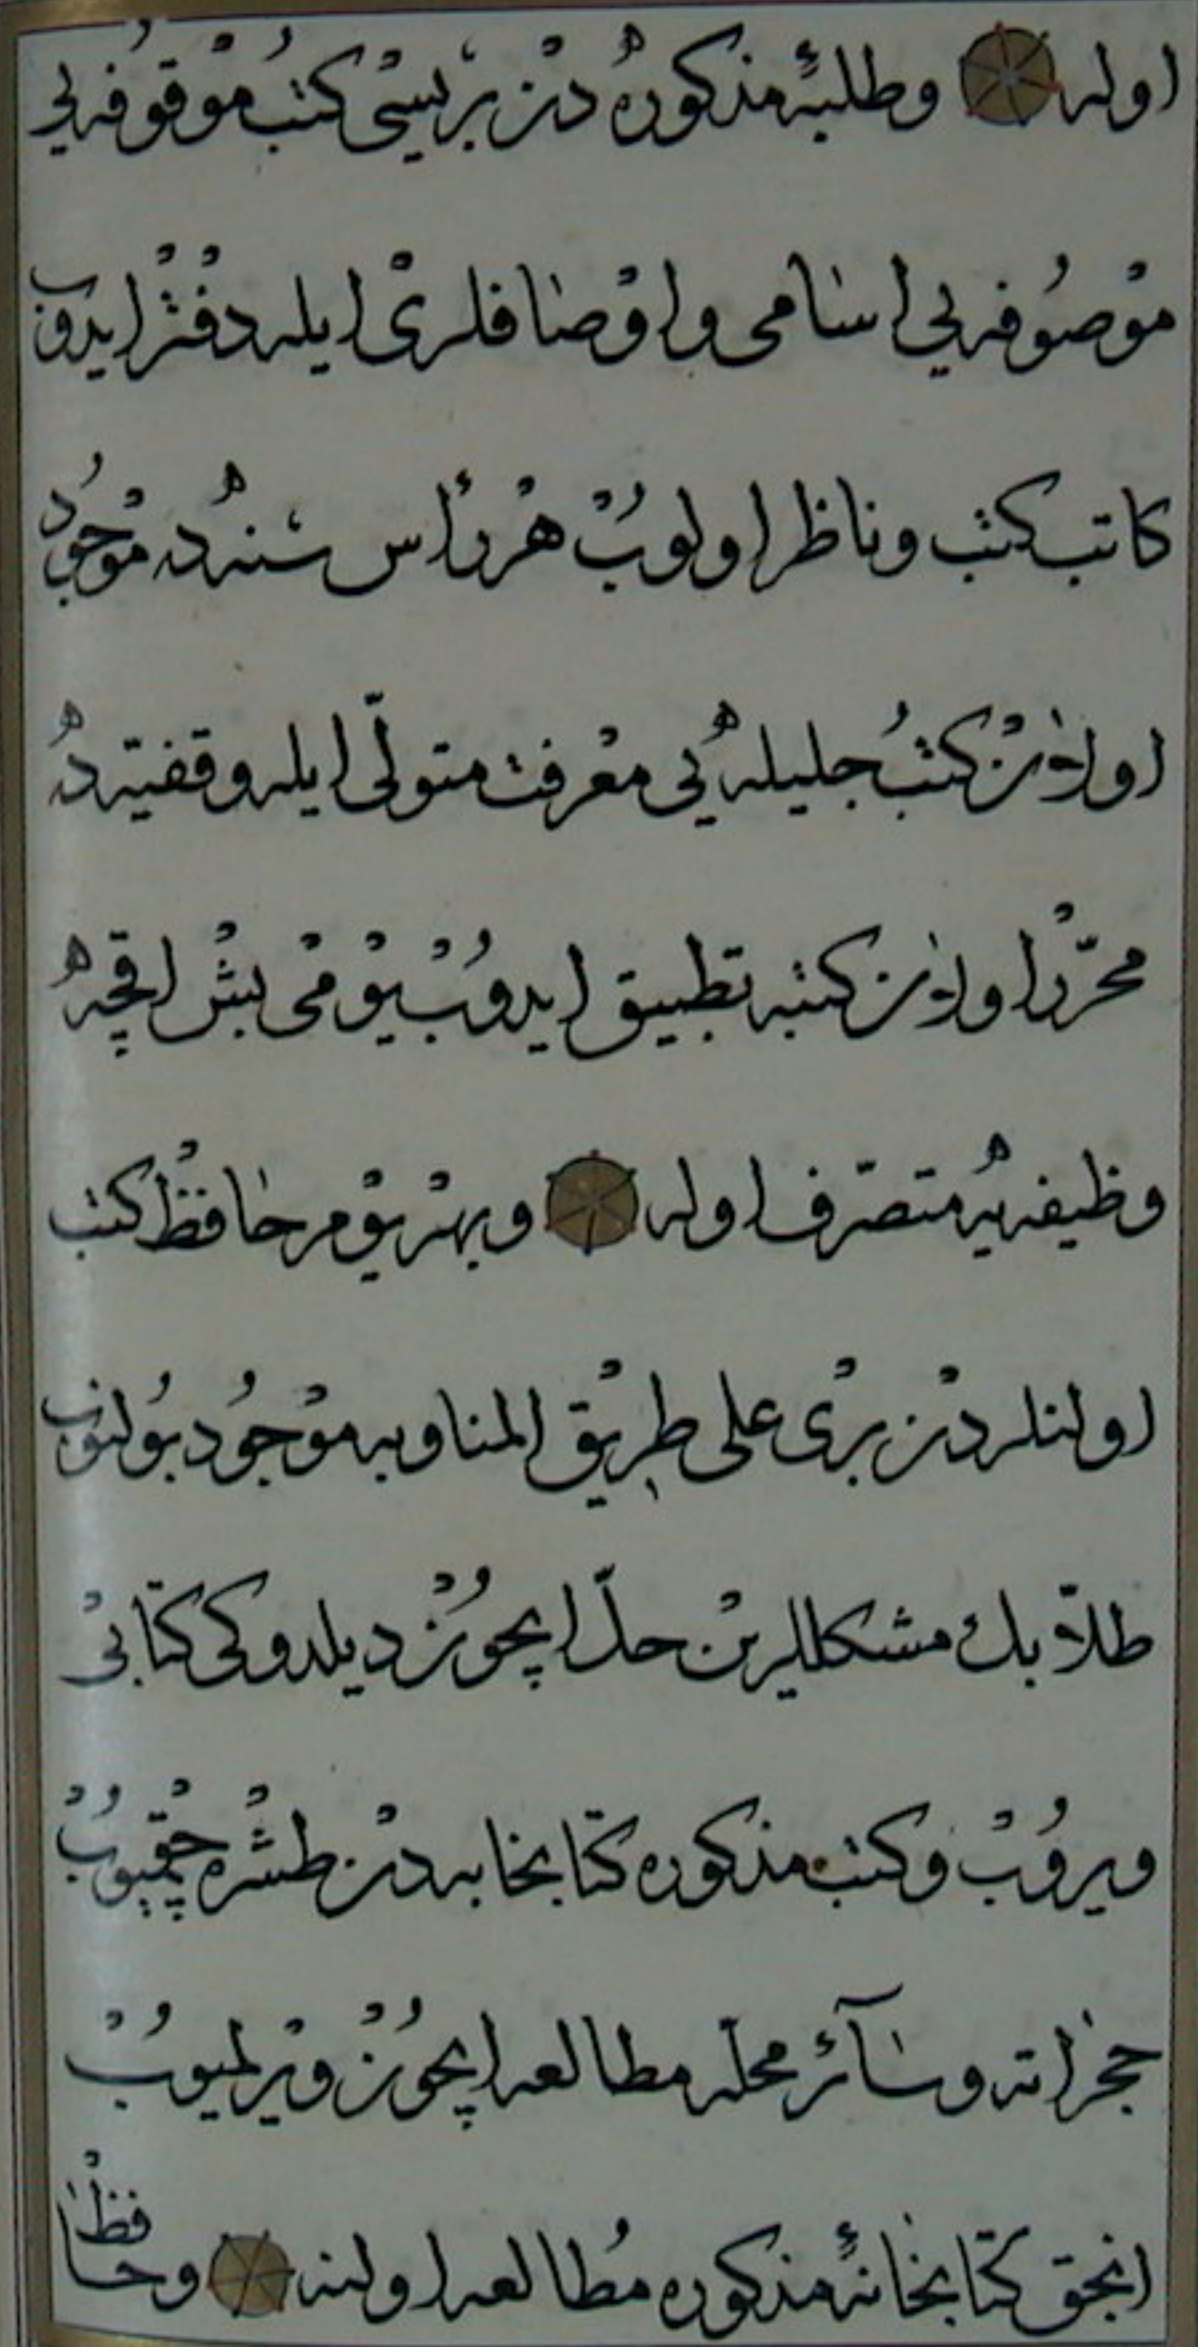 اوله وطلبۀ مذكوره دن بريسى كتب موقوفه يى
موصوفه يى اسامى واوصافلرى ايله دفتر ايدوب
كاتب كتب وناظر اولوب هر رأس سنه ده موجود
اولان كتب جليله يى معرفت متولّى ايله وقفيّه ده
محرّر اولان كتبه تطبيق ايدوب يومى بش اقچه
وظيفه يه متصرّف اوله وبهر يوم حافظ كتب
اولنلردن برى على طريق المناوبه موجود بولنوب
طلّابك مشكللرين حلّ ايچون ديلدوكى كتابى
ويروب وكتب مذكوره كتابخانه دن طشره چقميوب
حجراته وسآئر محلّه مطالعه ايچون ويرلميوب
انجق كتابخانۀ مذكوره مطالعه اولنه وحافظ